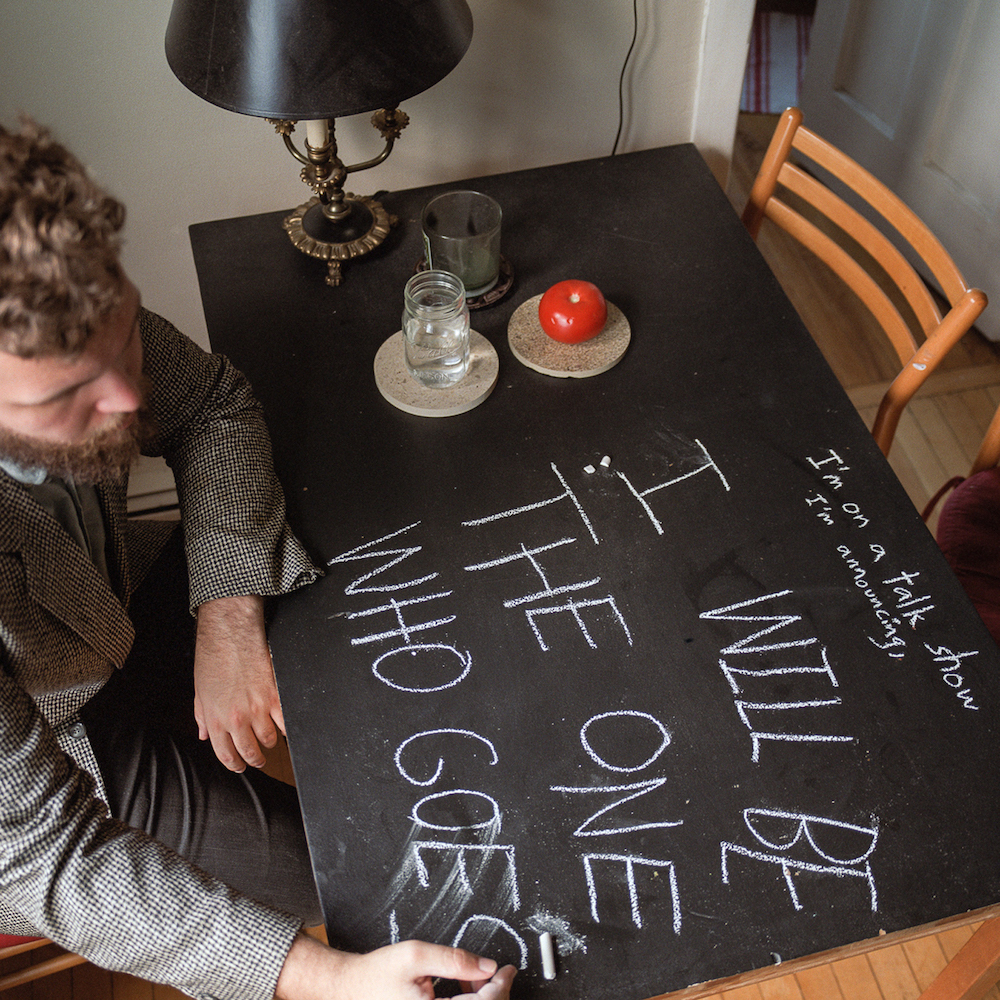 I'm on a talk show
I'm announcing,
I WILL BE
THE ONE
WHO GOES